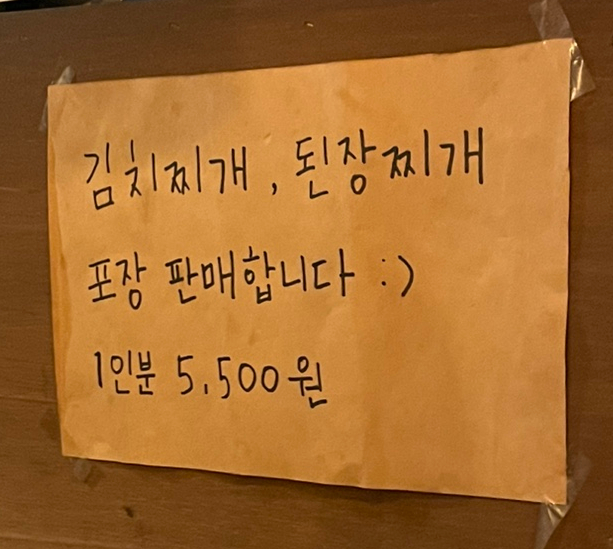 김치찌개, 된장찌개
포장 판매합니다 :)
1인분 5,500원